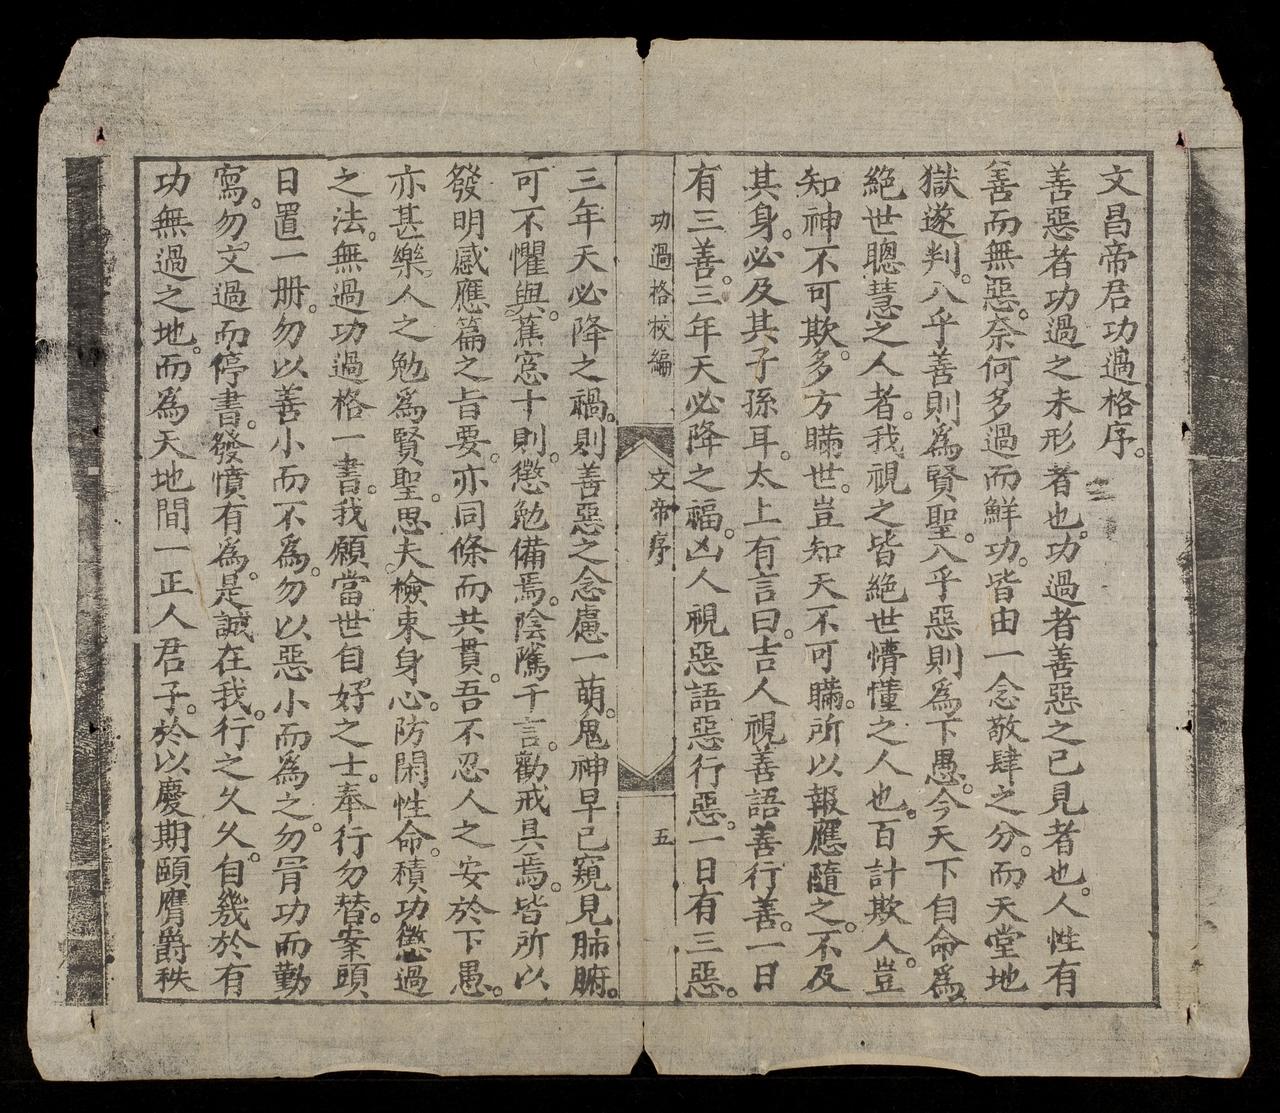 文昌帝君功過格序。
善惡者功過之未形者也。功過者善惡之已見者也。人性有
善而無惡。奈何多過而鮮功。皆由一念敬肆之分。而天堂地
獄遂判。入乎善則爲賢聖。入乎惡則爲下愚。今天下自命爲
絕世聰慧之人者。我視之皆絕世懵懂之人也。百計欺人。豈
知神不可欺。多方瞞世。豈知天不可瞞。所以報應隨之。不及
其身。必及其子孫耳。太上有言曰。吉人視善語善行善。一日
有三善。三年天必降之福。凶人視惡語惡行惡。一日有三惡。
功過格校編
文帝序
五
三年天必降之禍。則善惡之念慮一萌。鬼神早已窺見肺腑。
可不懼與。蕉窓十則。懲勉備焉。陰隲千言。勸戒具焉。皆所以
發明感應篇之旨要。亦同條而共貫。吾不忍人之安於下愚。
亦甚樂人之勉爲賢聖。思夫檢束身心。防閑性命。積功懲過
之法。無過功過格一書。我願當世自好之士。奉行勿替。案頭
日置一册。勿以善小而不爲。勿以惡小而爲之。勿胥功而勤
寫。勿文過而停書。發憤有爲。是誠在我。行之久久。自幾於有
功無過之地。而爲天地間一正人君子。於以慶期頤膺爵秩